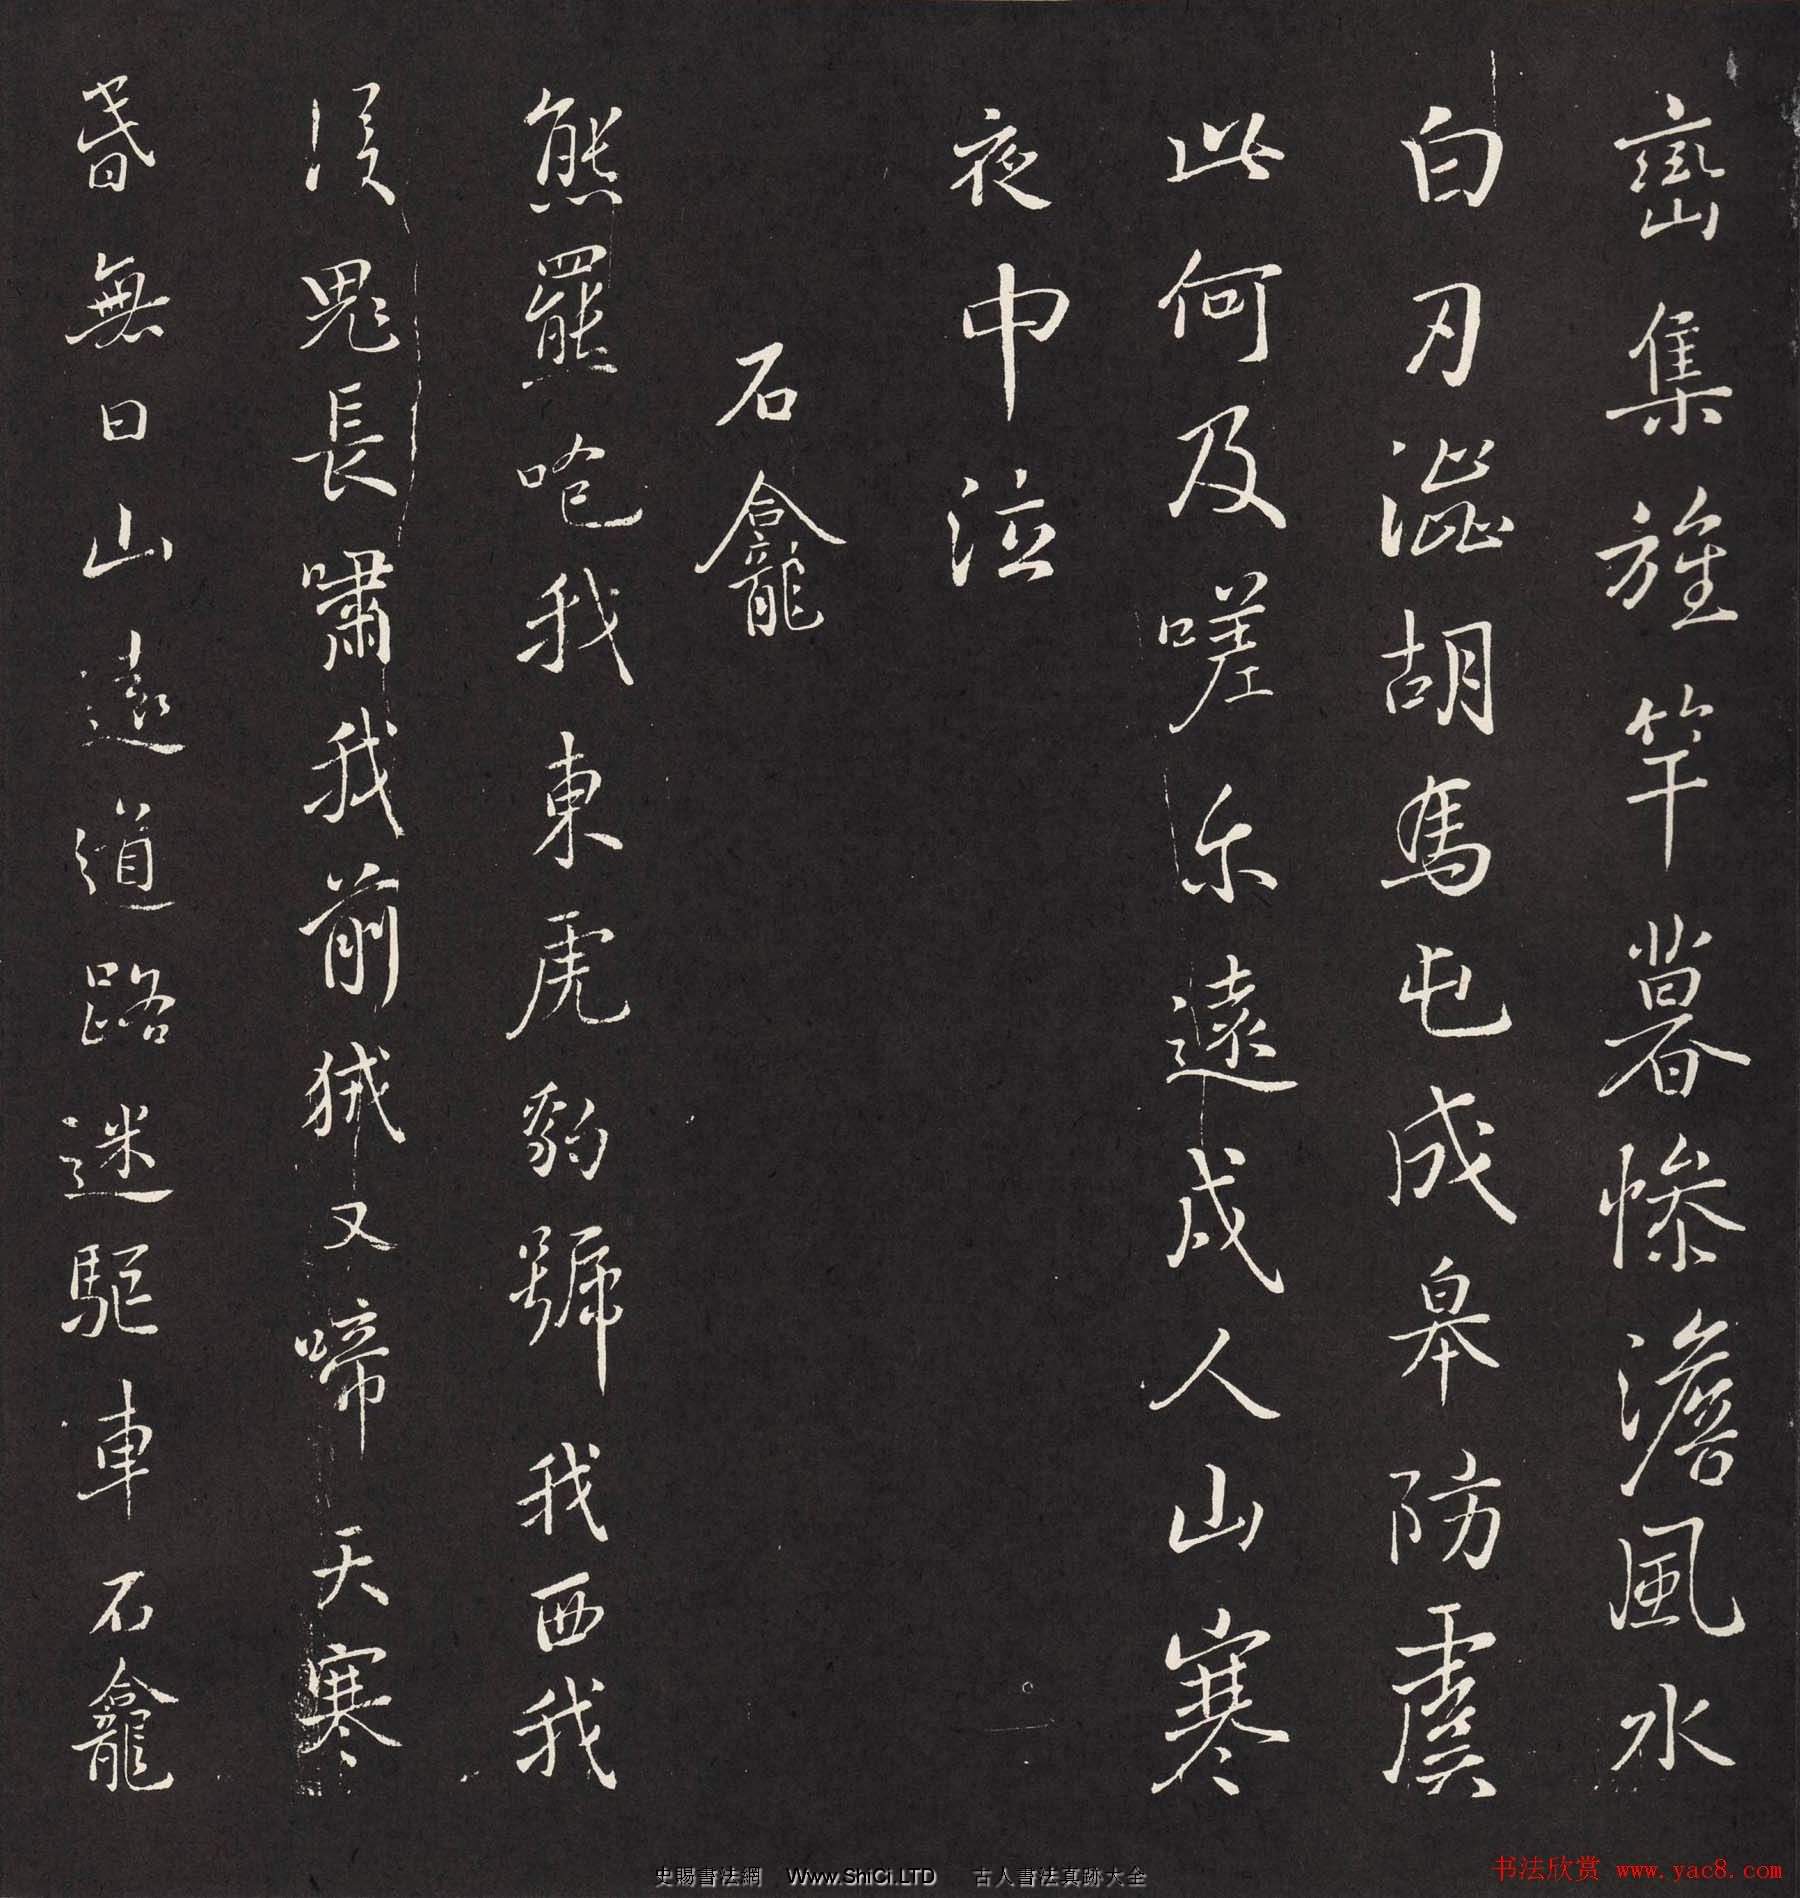 巒集旌竿暮慘澹風水
白刃澁胡馬屯成皋防虞
此何及嗟尔遠戍人山寒
夜中泣
石龕
熊羆咆我東虎豹號我西我
後鬼長嘯我前狨又啼天寒
昏無日山遠道路迷驅車石龕
史賜書法網 Www.ShiCi.LTD 古人書法真跡大全
书法欣赏 www.yac8.com